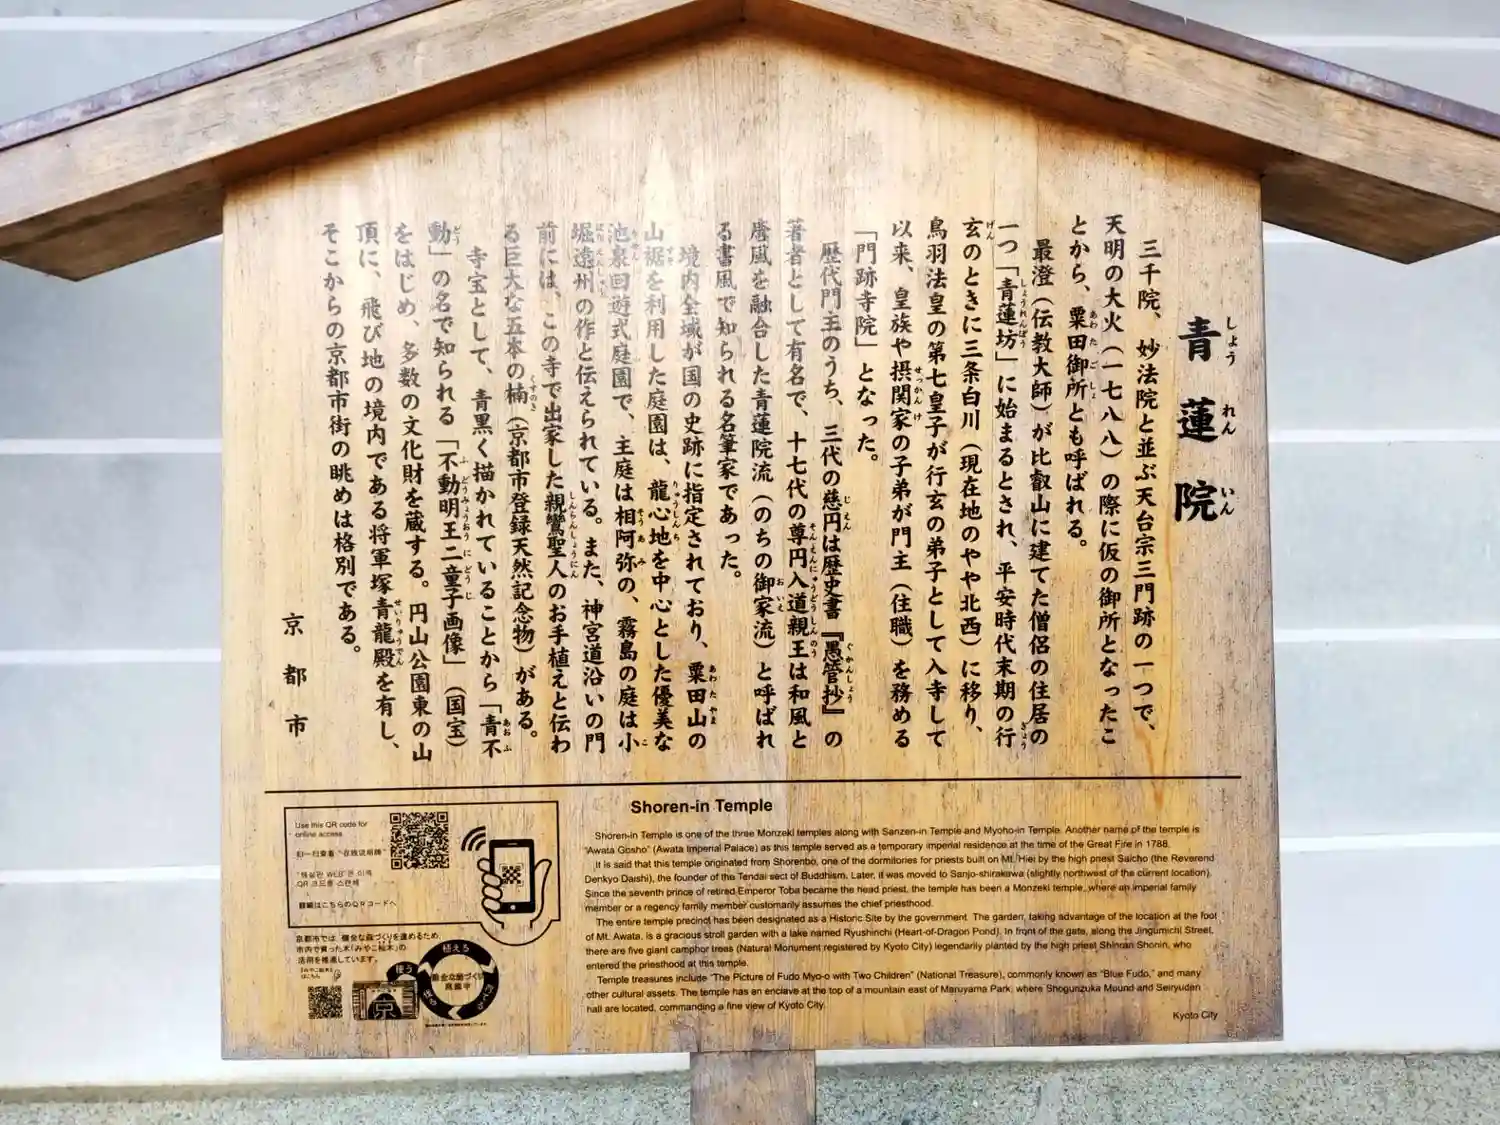 青蓮院
三千院、妙法院と並ぶ天台宗三門跡の一つで、
天明の大火（一七八八）の際に仮の御所となったこ
とから、粟田御所とも呼ばれる。
最澄（伝教大師）が比叡山に建てた僧侶の住居の
一つ「青蓮坊」に始まるとされ、平安時代末期の行
玄のときに三条白川（現在地のやや北西）に移り、
鳥羽法皇の第七皇子が行玄の弟子として入寺して
以来、皇族や摂関家の子弟が門主（住職）を務める
「門跡寺院」となった。
歴代門主のうち、三代の慈円は歴史書『愚管抄』の
著者として有名で、十七代の尊円入道親王は和風と
唐風を融合した青蓮院流（のちの御家流）と呼ばれ
る書風で知られる名筆家であった。
境内全域が国の史跡に指定されており、粟田山の
山裾を利用した庭園は、龍心池を中心とした優美な
池泉回遊式庭園で、主庭は相阿弥の、霧島の庭は小
堀遠州の作と伝えられている。また、神宮道沿いの門
前には、この寺で出家した親鸞聖人のお手植えと伝わ
る巨大な五本の楠（京都市登録天然記念物）がある。
寺宝として、青黒く描かれていることから「青不
動」の名で知られる「不動明王二童子画像」（国宝）
をはじめ、多数の文化財を蔵する。円山公園東の山
頂に、飛び地の境内である将軍塚青龍殿を有し、
そこからの京都市街の眺めは格別である。
京都市
Shoren-in Temple
Shoren-in Temple is one of the three Monzeki temples along with Sanzen-in Temple and Myoho-in Temple. Another name of the temple is
"Awata Gosho" (Awata Imperial Palace) as this temple served as a temporary imperial residence at the time of the Great Fire in 1788.
It is said that this temple originated from Shorenbo, one of the dormitories for priests built on Mt. Hiei by the high priest Saicho (the Reverend
Denkyo Daishi), the founder of the Tendai sect of Buddhism. Later, it was moved to Sanjo-shirakawa (slightly northwest of the current location).
Since the seventh prince of retired Emperor Toba became the head priest, the temple has been a Monzeki temple, where an imperial family
member or a regency family member customarily assumes the chief priesthood.
The entire temple precinct has been designated as a Historic Site by the government. The garden, taking advantage of the location at the foot
of Mt. Awata, is a gracious stroll garden with a lake named Ryushinchi (Heart-of-Dragon Pond). In front of the gate, along the Jingumichi Street,
there are five giant camphor trees (Natural Monument registered by Kyoto City) legendarily planted by the high priest Shinran Shonin, who
entered the priesthood at this temple.
Temple treasures include "The Picture of Fudo Myo-o with Two Children" (National Treasure), commonly known as "Blue Fudo," and many
other cultural assets. The temple has an enclave at the top of a mountain east of Maruyama Park, where Shogunzuka Mound and Seiryuden
hall are located, commanding a fine view of Kyoto City.
Kyoto City
Use this QR code for
online access
扫一扫查看"在线说明牌"
"해설판 WEB"은 이쪽
QR 코드를 스캔해
駒札はこちらのQRコードへ
京都市では、健全な森づくりを進めるため、
市内で育った木「みやこ杣木」の
活用を推進しています。
「みやこ杣木」
はこちら
植える
使う
京